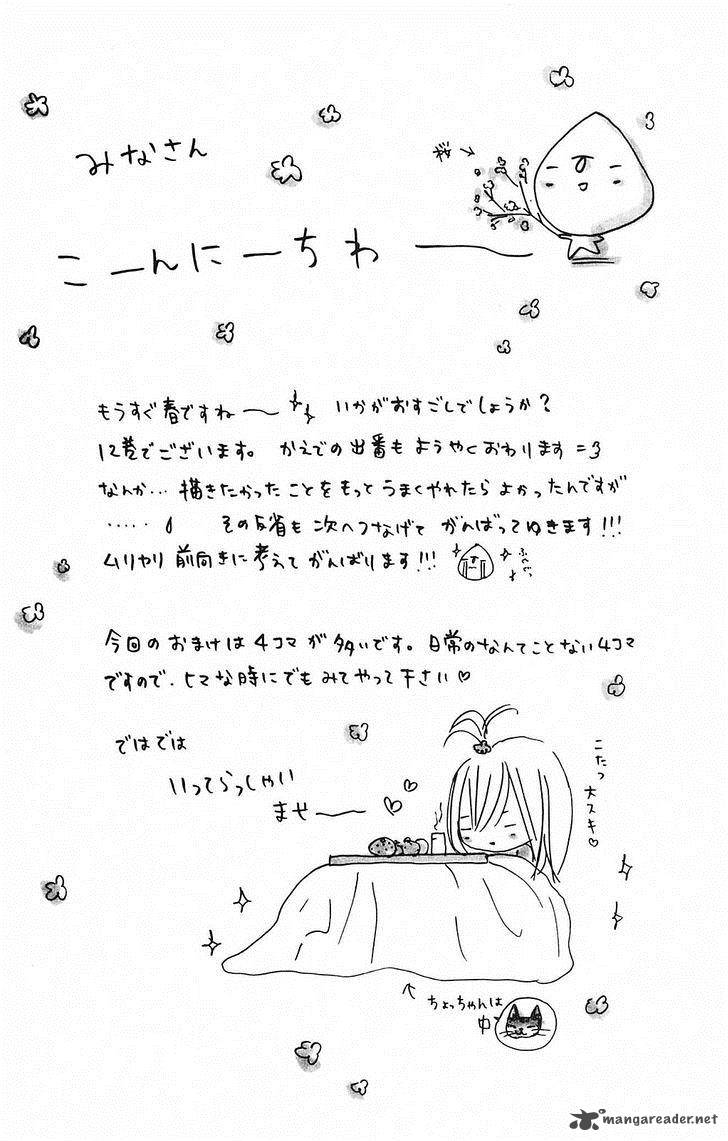 みなさん
こーんにーちわ――
もうすぐ春ですね〜 いかがおすごしでしょうか?
12巻でございます。 かえでの出番もようやくおわります=3
なんか… 描きたかったことをもっとうまくやれたらよかったんですが
‥‥‥ その反省も次へつなげてがんばってゆきます!!!
ムリヤリ前向きに考えてがんばります!!!
今回のおまけは4コマが多いです。日常のなんてことない4コマ
ですので、ヒマな時にでもみてやって下さい♡
ではでは
いってらっしゃい
ませ――
こたつ大スキ♡
ちょっちゃんは
中
mangareader.net